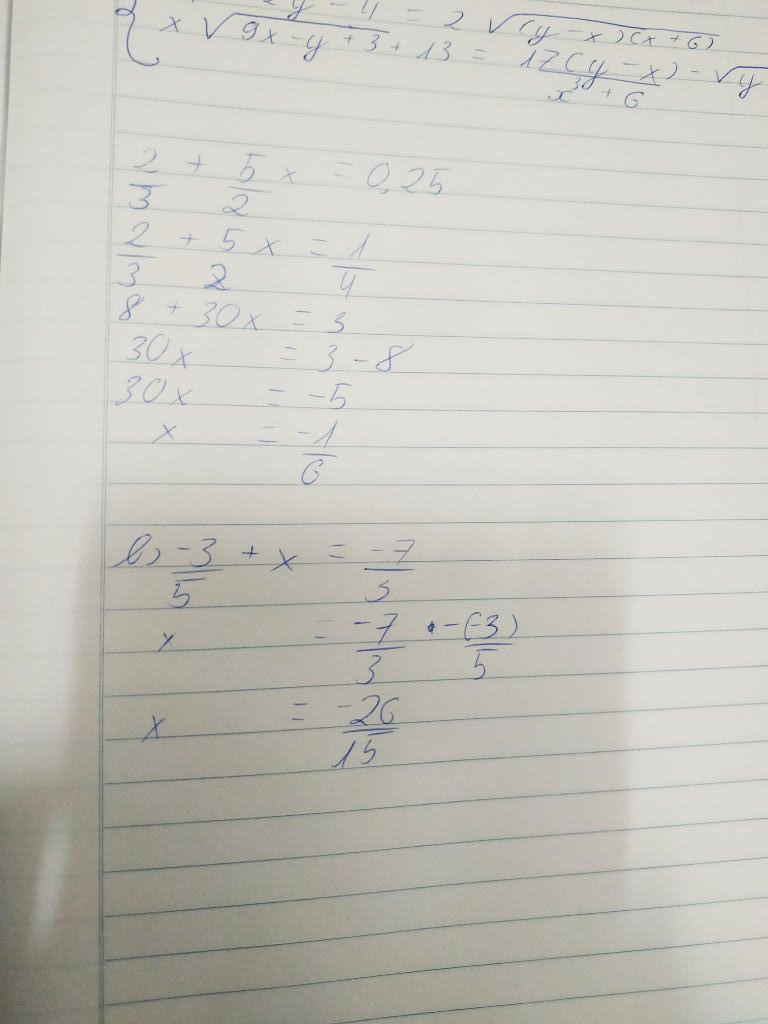 2y - 4 = 2 √(y - x)(x + 6)
x √9x - y + 3 + 13 = 17(y - x)/x³ + 6 - √y
2/3 + 5/2 x = 0,25
2/3 + 5/2 x = 1/4
8 + 30x = 3
30x = 3 - 8
30x = -5
x = -1/6
b) -3/5 + x = -7/3
x = -7/3 - (-3)/5
x = -26/15